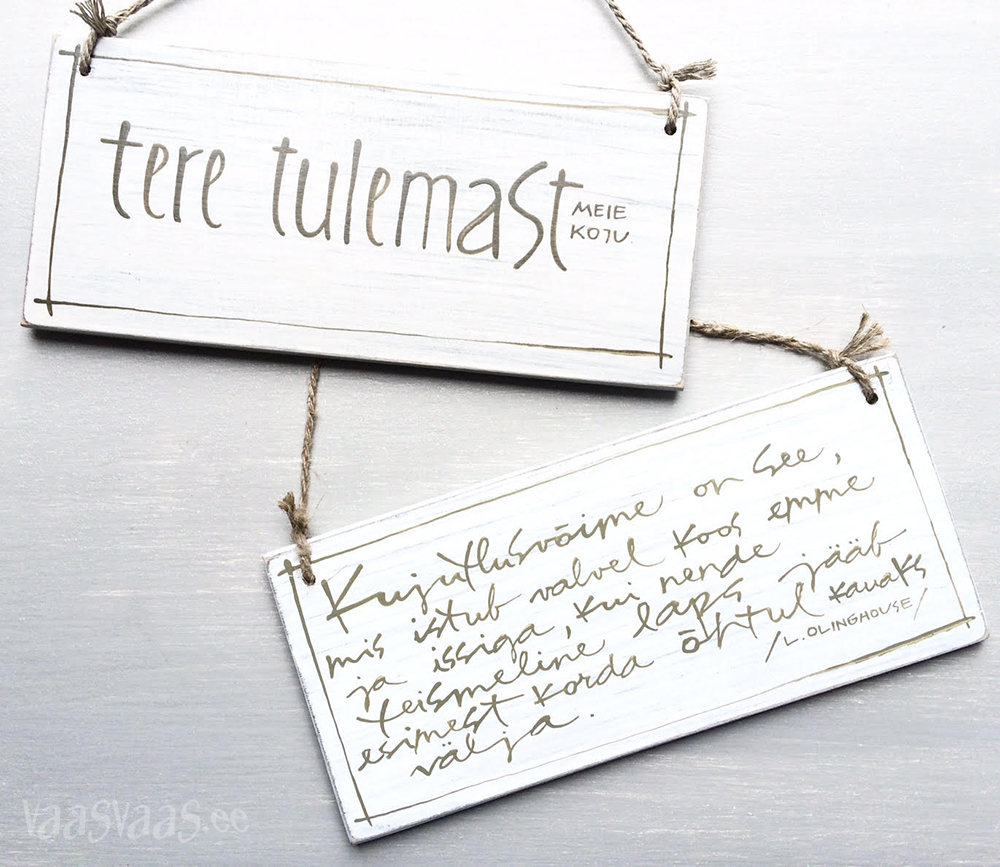 tere tulemast
MEIE
KOJU.
Kujutlusvõime on see,
mis istub valvel koos emme
ja issiga, kui nende
teismeline laps jääb
esimest korda õhtul kauaks
välja.
/L.OLINGHOUSE/
vaasvaas.ee